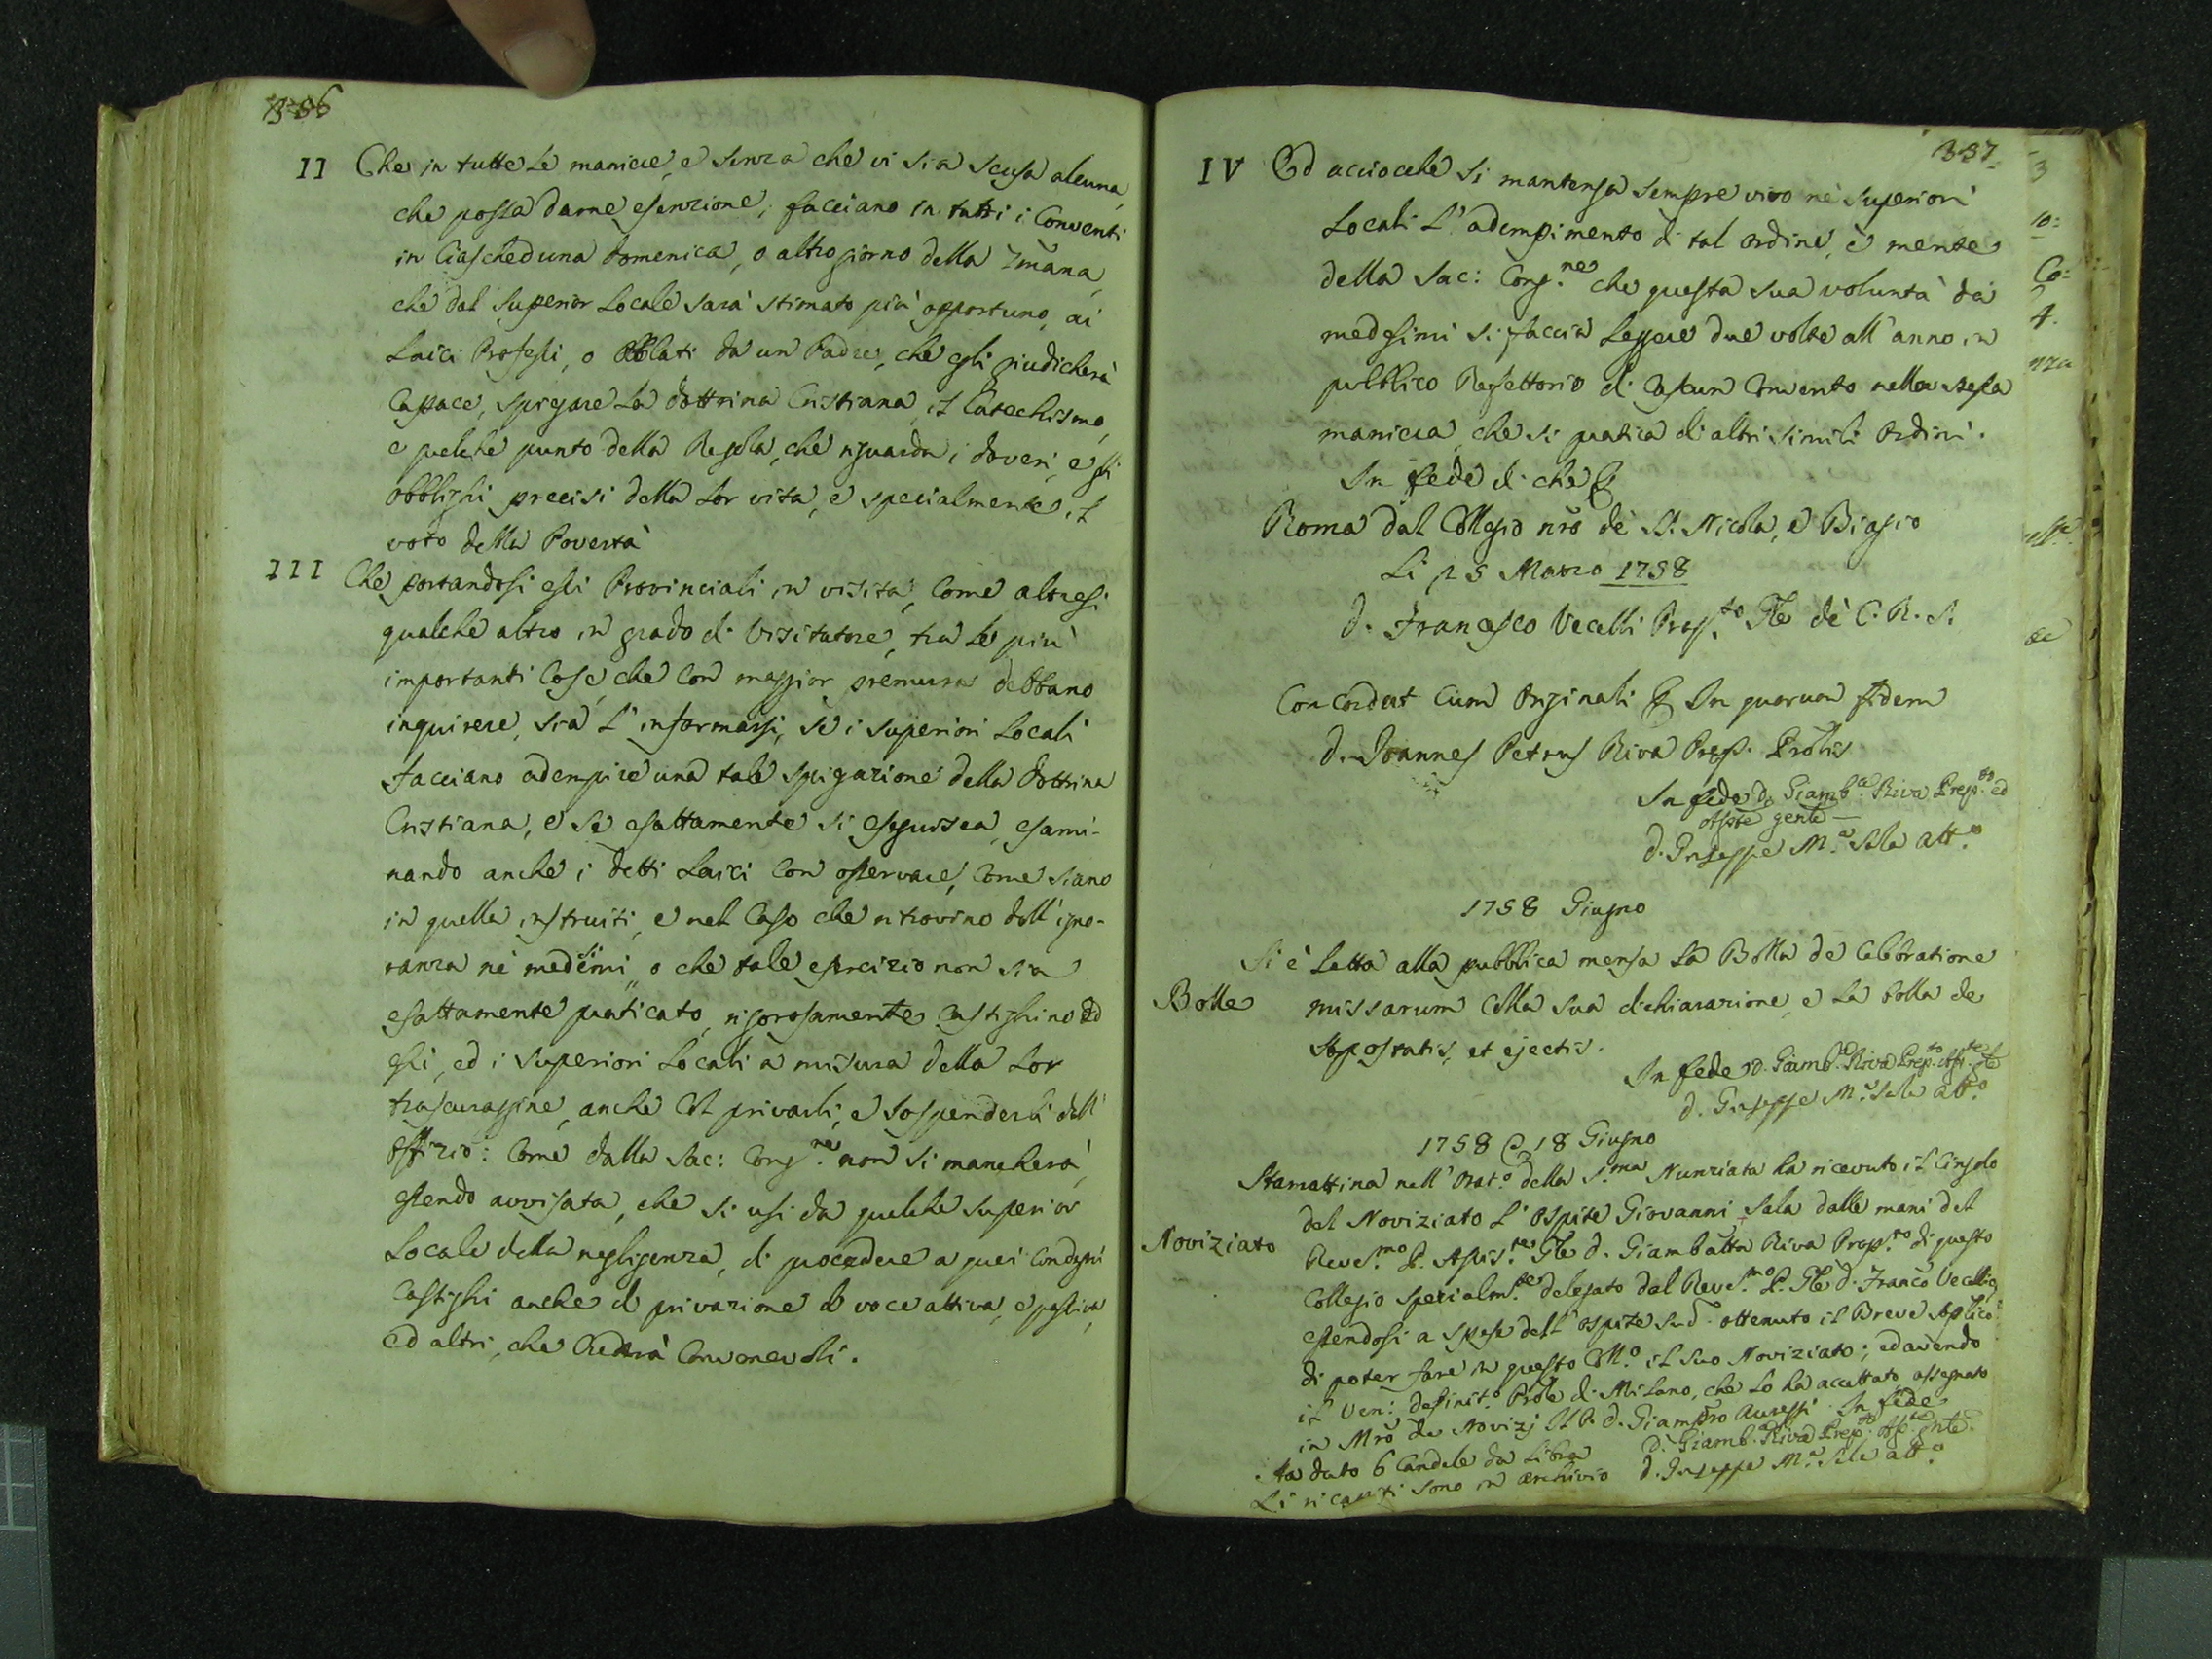 386
II Che in tutte le maniere, e senza che vi sia scusa alcuna,
che possa darne esenzione, facciano in tutti i Conventi
in Ciascheduna Domenica, o altro giorno della 7mana,
che dal Superior Locale sarà stimato più opportuno, ai
Laici Professi, o Oblati da un Padre, che egli giudicherà
Capace, spiegare la dottrina Cristiana, il Catechismo,
e qualche punto della Regola, che riguarda i doveri, e gli
obblighi precisi della lor vita, e specialmente il
voto della Povertà
III Che portandosi essi Provinciali in visita, come altresi
qualche altro in grado di Visitatore, tra le più
importanti Cose, che con maggior premura debbano
inquirere, sia l'informarsi, se i Superiori Locali
facciano adempire una tale spiegazione della dottrina
Cristiana, e se esattamente si eseguisca, esami-
nando anche i detti Laici con osservare, come siano
in quella instruiti, e nel Caso che ritrovino dell'igno-
ranza nè medemi, o che tale esercizio non sia
esattamente praticato, rigorosamente castighino ed
essi, ed i Superiori Locali a misura della lor
trascuraggine, anche col privarli, e sospenderli dell'
offizio: Come dalla Sac: Cong.ne non si mancherà,
essendo avvisata, che si usi da qualche Superior
Locale della negligenza, di procedere a quei Condegni
Castighi anche di privazione di voce attiva, e passiva,
ed altri, che Crederà Convenevoli.
387
IV Ed acciocchè si mantenga sempre vivo nè Superiori
Locali l'adempimento di tal ordine, è mente
della Sac: Cong.ne che questa sua voluntà da
medesimi si faccia leggere due volte all'anno in
pubblico Refettorio di Ciascun Convento nella stessa
maniera, che si pratica di altri simili ordini.
In fede di che &
Roma dal Collegio nro de SS. Nicola, e Biagio
Li 25 Marzo 1758
D. Francesco Vecelli Prep.to Gle dè C. R. S.
Concordat cum originali & In quorum fidem
D. Joannes Petrus Riva Prep. Prolis
In fede D. Giamb.a Riva Prep.to ed
Asste gente
D. Giuseppe M.a Sala att.o
1758 Giugno
Si è letta alla pubblica mensa la Bolla de Celebratione
Bolle missarum colla sua dichiarazione, e la bolla de
Apostatis, et ejectis.
In fede D. Giamb.a Riva Prep.to Ass.te Gle
D. Giuseppe M.a Sala att.o
1758 18 Giugno
Stamattina nell'Orat.o della S.ma Nunziata ha ricevuto il Cingolo
del Noviziato l'ospite Giovanni Sala dalle mani del
Noviziato Reves.mo P. Assis.te Gle D. Giambatta Riva Prep.to di questo
Collegio spezialm.te delegato dal Reves.mo P. Gle D. Franco Vecelli,
essendosi a spese dell'ospite sud. ottenuto il Breve Aplico
di poter fare in questo Coll.o il suo Noviziato; ed avendo
il Ven: Definit.o Prole di Milano, che lo ha accettato, assegnato
in Mro de Novizj il P. D. Giampro In fede
Ha dato 6 Candele da Libra D. Giamb.a Riva Prep.to Ass.te
Li ricapiti sono in archivio D. Giuseppe M.a Sala att.o